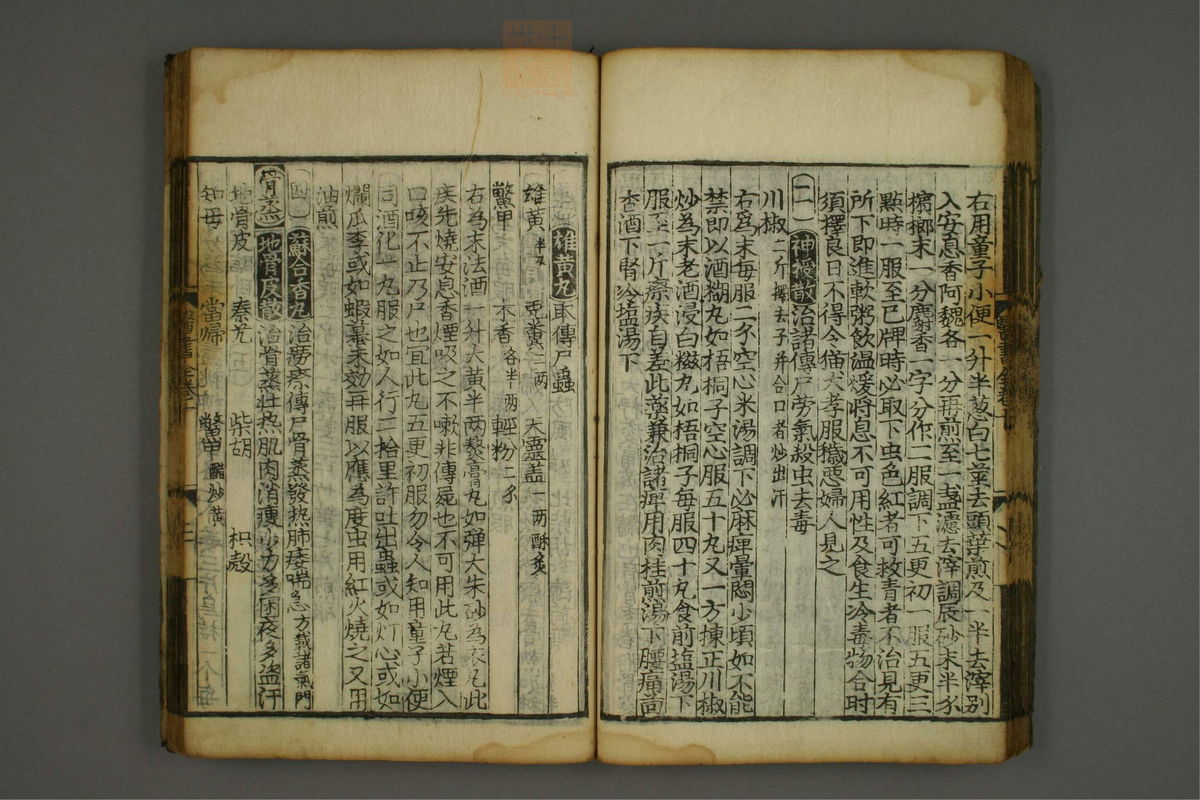 右用童子小便一升半葱白七莖去頭葉煎及一半去滓别
入安息香阿魏各一分再煎至一盞濾去滓調辰砂末半分
檳榔末一分麝香一字分作二服調下五更初一服五更三
點時一服至巳牌時必取下虫色紅者可救青者不治見有
所下即進軟粥飲温煖將息不可用性及食生冷毒物合時
須擇良日不得令猫犬孝服穢惡婦人見之
二 神授散 治諸傳尸勞氣殺虫去毒
川椒 二斤擇去子并合口者炒出汗
右爲末每服二分空心米湯調下必麻痺暈悶少頃如不能
禁即以酒糊丸如梧桐子空心服五十丸又一方揀正川椒
炒為末老酒浸白糍丸如梧桐子每服四十丸食前塩湯下
服至一斤瘵疾自差此薬兼治諸痺用肉桂煎湯下腰痛茴
香酒下腎冷塩湯下
雄黄丸 取傳尸蟲
雄黄半两 兎糞二两 天靈蓋一两酥炙
鱉甲 木香各半两 輕粉二分
右為末法酒一升大黄半两熬膏丸如弾大朱砂為衣凡此
疾先燒安息香煙吸之不嗽非傳屍也不可用此丸若煙入
口咳不止乃尸也宜此丸五更初服勿令人知用童子小便
同酒化一丸服之如人行二拾里許吐出蟲或如灯心或如
爛瓜李或如蝦蟇未効再服以應為度虫用紅火燒之又用
油煎
四 蘇合香丸 治癆瘵傳尸骨蒸發热肺痿喘急方載諸氣門
骨蒸 地骨皮散 治骨蒸壮热肌肉消瘦少力多困夜多盗汗
地骨皮 秦艽 柴胡 枳殼
知母 當歸 鱉甲醋炒黄
醫書 卷十